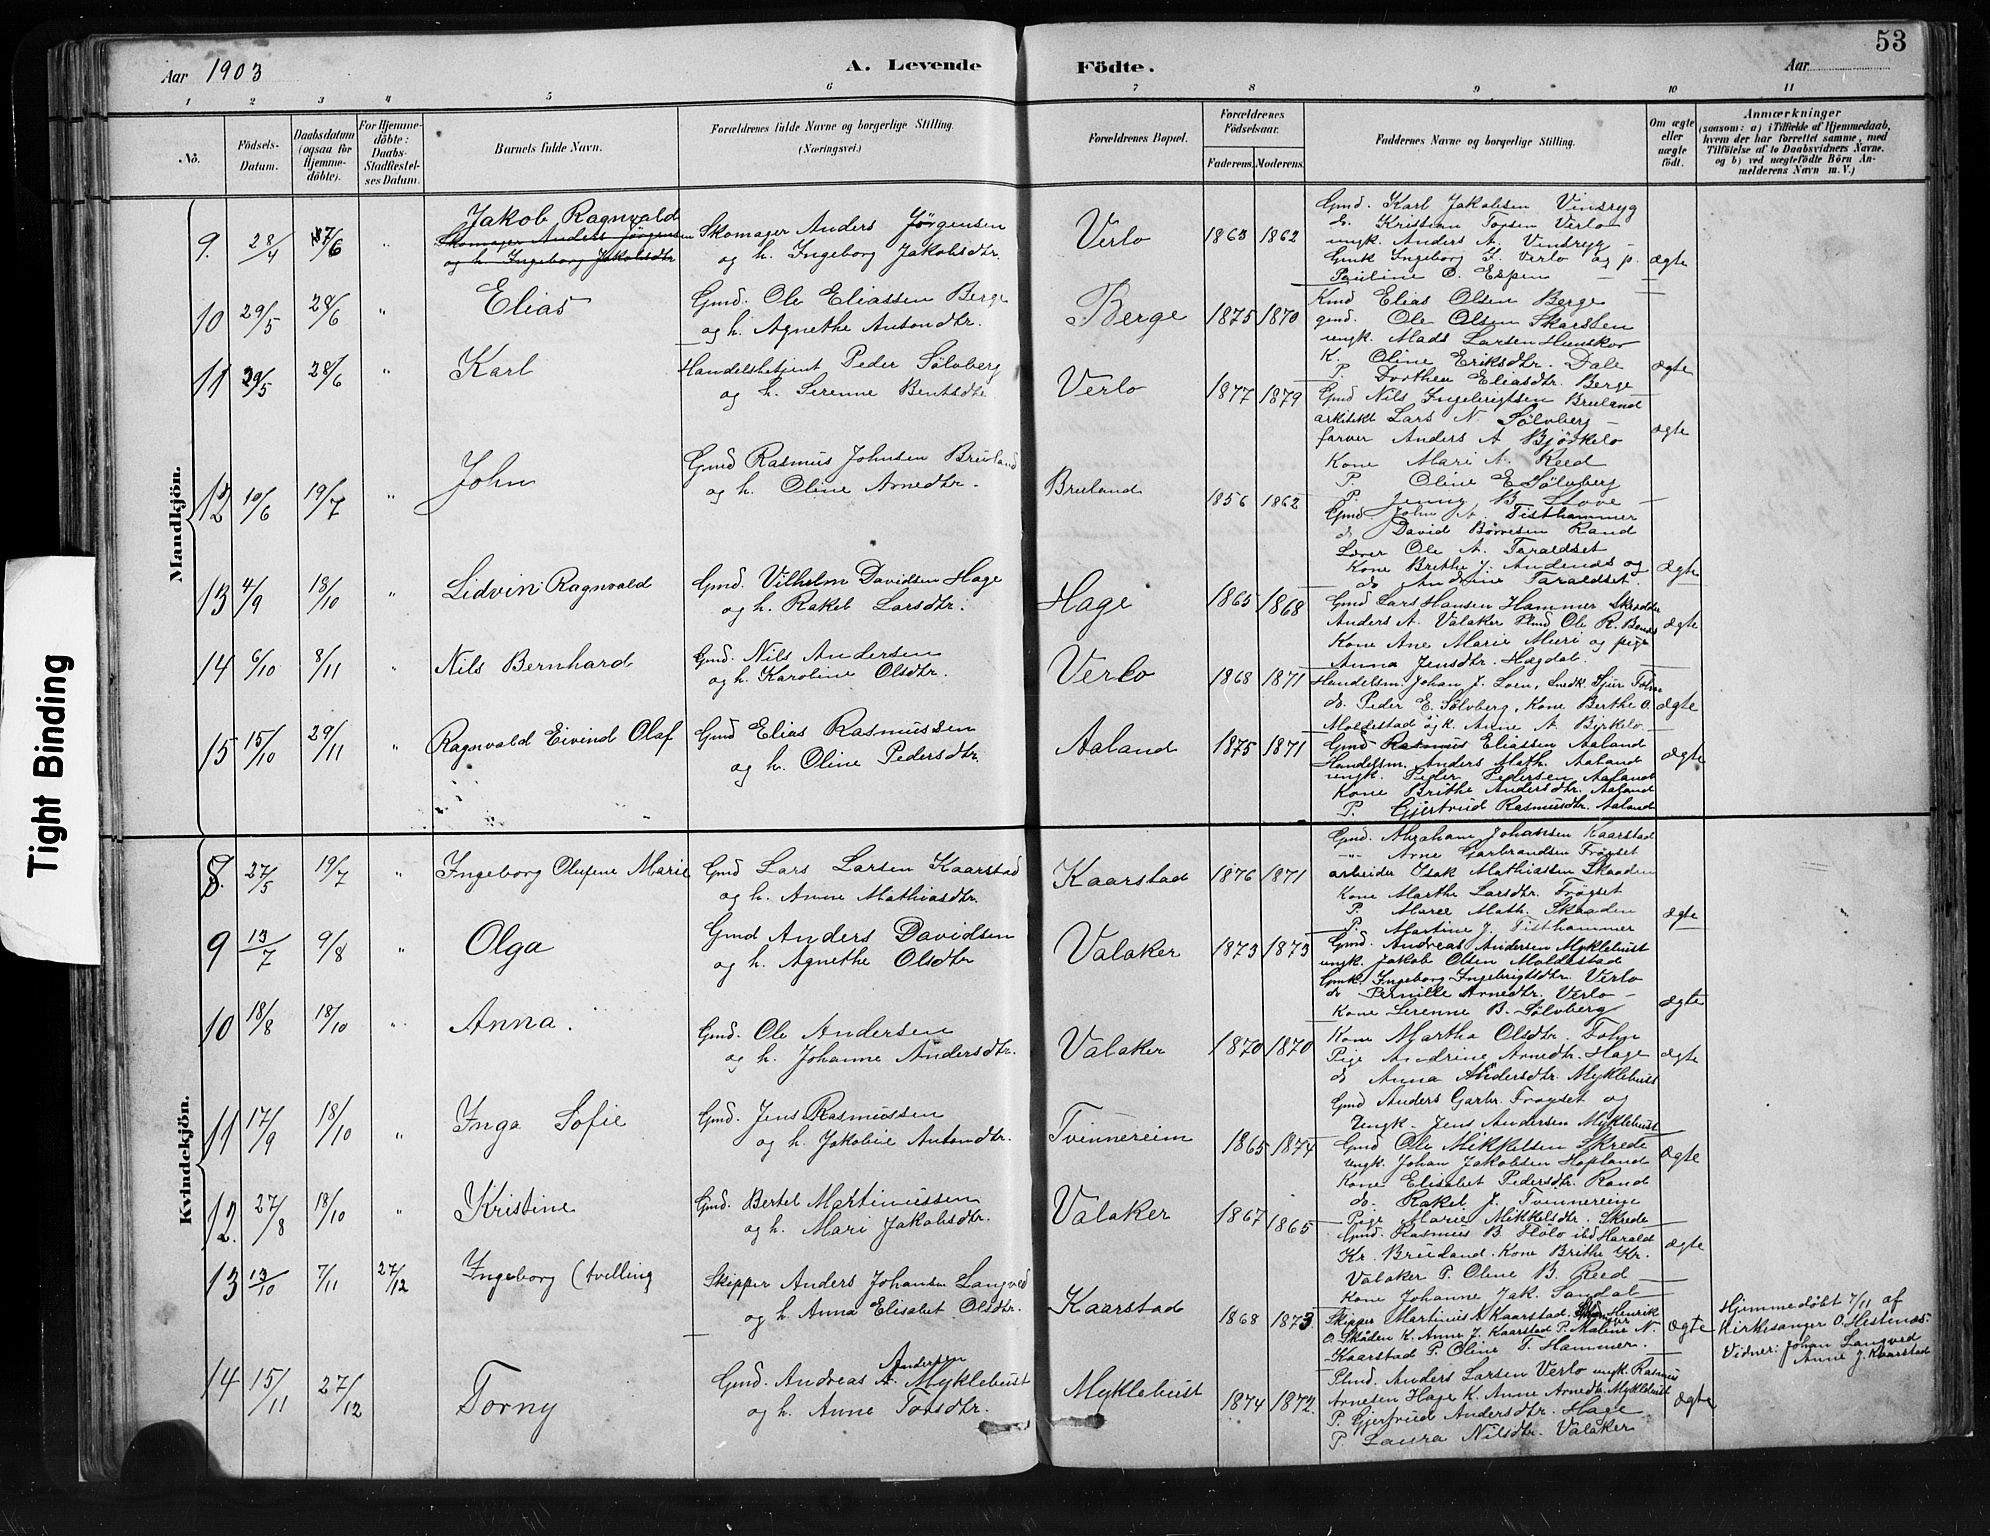 53
Aar 1903
A. Levende Födte.
Aar
1 2 3 4 5 6 7 8 9 10 11
No.
Födsels-Datum.
Daabsdatum (ogsaa for Hjemmedöbte).
For Hjemmedöbte: Daabs-Stadfæstelses Datum.
Barnets fulde Navn.
Forældrenes fulde Navne og borgerlige Stilling. (Næringsvei.)
Forældrenes Bopæl.
Forældrenes Födselsaar.
Faderens. Moderens.
Faddernes Navne og borgerlige Stilling.
Om ægte eller uægte födt.
Anmærkninger
(saasom: a) i Tilfælde af Hjemmedaab,
hvem der har forrettet samme, med
Tilföielse af to Daabsvidners Navne,
og b) ved uægtefödte Börn An-
melderens Navn m. V.)
Mandkjön.
9. 28/4 7/6 " Jakob Ragnvald
Skomager Anders Jörgensen
og h. Ingeborg Jakobsdtr
Skomager Anders Jørgensen
og h. Ingeborg Jakobsdtr.
Verlo 1863 1862
Gmd. Karl Jakobsen Vinsryg
do. Kristian Torsen Verlo
ungk. Anders A. Vinsryg
Gmk Ingeborg Verlo og p.
Pauline O. Espen
ægte
10 29/5 28/6 " Elias
Gmd. Ole Eliassen Berge
og h. Agnethe Antondtr.
Berge 1875 1870
Kmd Elias Olsen Berge
gmd. Ole Olsen Skarsten
ungk. Mads Larsen
K. Oline Eriksdtr. Dale
P. Dorthea Eliasdtr. Berge
ægte
11 29/5 28/6 " Karl
Handelsbetjent Peder Sølvberg
og h. Serenne Bentsdtr.
Verlo 1877 1879
Gmd Nils Ingebrigtsen Bruland
arkitekt Lars N. Sølvberg
farver Anders A Bjørkelo
Kone Mari A. Reed
P. Oline E Sølvberg
P. Jenny B. Stove
ægte
12 10/6 19/7 " John
Gmd Rasmus Johnsen Bruland
og h. Oline Arnedtr.
Bruland 1856 1862
Gmd John A. Tisthammer
do David Børresen Rand
Lærer Ole A. Taraldset
Kone Brithe J. Andenæs og
do Andrine Taraldset.
ægte
13 4/9 18/10 " Lidvin Ragnvald
Gmd. Vilhelm Davidsen Hage
og h. Rakel Larsdtr.
Hage 1865 1868
Gmd Lars Hansen Hammer Skrædder
Anders A. Valaker Ole R.
Kone Ane Marie Muri og pige
Anna Jensdtr. Hægdal.
ægte
14 6/10 8/11 " Nils Bernhard
Gmd. Nils Andersen
og h. Karoline Olsdtr.
Verlo 1868 1871
Handelsm. Johan J. Loen, Snedk. Sjur
do. Peder E. Sølvberg, Kone Berthe O.
Moldestad og k. Anne A. Birkelo
ægte
15 15/10 29/11 " Ragnvald Eivind Olaf
Gmd Elias Rasmussen
og h. Oline Pedersdtr.
Aaland 1875 1871
Gmd Rasmus Eliassen Aaland
Handelsm. Anders Math. Aaland
ungk. Peder Pedersen Aaland
Kone Brithe Andersdtr. Aaland
P. Gjertrud Rasmusdtr. Aaland
ægte
Kvindekjön.
8. 27/5 19/7 " Ingeborg Olufine Marie
Gmd Lars Larsen Kaarstad
og h. Anne Mathiasdtr.
Kaarstad 1876 1871
Gmd. Abraham Johansen Kaarstad
" Arne Garbrandsen Frøyset
arbeider Isak Mathiassen Skaaden
Kone Marthe Larsdtr. Frøyset
P. Maree Math. Skaaden
P. Martine J. Tisthammer
ægte
9 13/7 9/8 " Olga
Gmd Anders Davidsen
og h. Agnethe Olsdtr
Valaker 1873 1873
Gmd. Andreas Andersen Myklebust
ungk. Jakob Olsen Moldestad
Gmk. Ingeborg Ingebrigtsdtr. Verlo
do Pernille Arnedtr. Verlo
Kone Serenne B. Sølvberg
ægte
10 18/8 18/10 " Anna.
Gmd. Ole Andersen
og h. Johanne Andersdtr.
Valaker 1870 1870
Kone Martha Olsdtr.
Pige Andrine Arnedtr. Hage
do Anna Andersdtr. Myklebust
Gmd Anders Garbr. Frøyset og
Ungk. Jens Andersen Myklebust
ægte
11 17/9 18/10 " Inga Sofie
Gmd. Jens Rasmussen
og h. Jakobie Antondtr.
Tvinnereim 1865 1874
Gmd Ole Mikkelsen Skrede
ungk. Johan Jakobsen Hopland
Kone Elisabet Pedersdtr. Rand
do. Rakel J. Tvinnereim
Pige Marie Mikkelsdtr. Skrede
ægte
12. 27/8 18/10 " Kristine
Gmd. Bertel Martinussen
og h. Mari Jakobsdtr.
Valaker 1867 1865
Gmd. Rasmus B. Flølo Harald
Kr. Bruland. Kone Brithe Kr.
Valaker P. Oline B. Reed
Kone Johanne Jak. Sandal
ægte
13 13/10 7/11 27/12 Ingeborg (tvilling
Skipper Anders Johansen Langved
og h. Anna Elisabet Olsdtr.
Kaarstad 1868 1873.
Skipper Martinus A Kaarstad Henrik
O. Skåden K. Anne J. Kaarstad P. Maline N.
Kaarstad P. Oline T. Hammer.
ægte
Hjemmedöbt 7/11 af
Kirkesanger O. Hestenæs.
Vidner: Johan Langved
Anne J. Kaarstad
14 15/11 27/12 Torny
Gmd. Andreas A. Andersen Myklebust
og h. Anne Torsdtr.
Myklebust 1874 1872.
Anders Larsen Verlo ungk. Rasmus
Arnesen Hage K. Anne Arnedtr. Myklebust
P. Gjertrud Andersdtr. Hage
P. Laura Nilsdtr. Valaker
ægte
Tight Binding